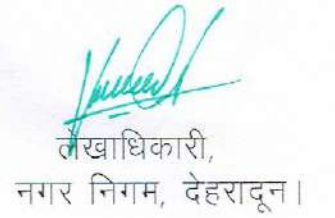 लेखाधिकारी,
नगर निगम, देहरादून।